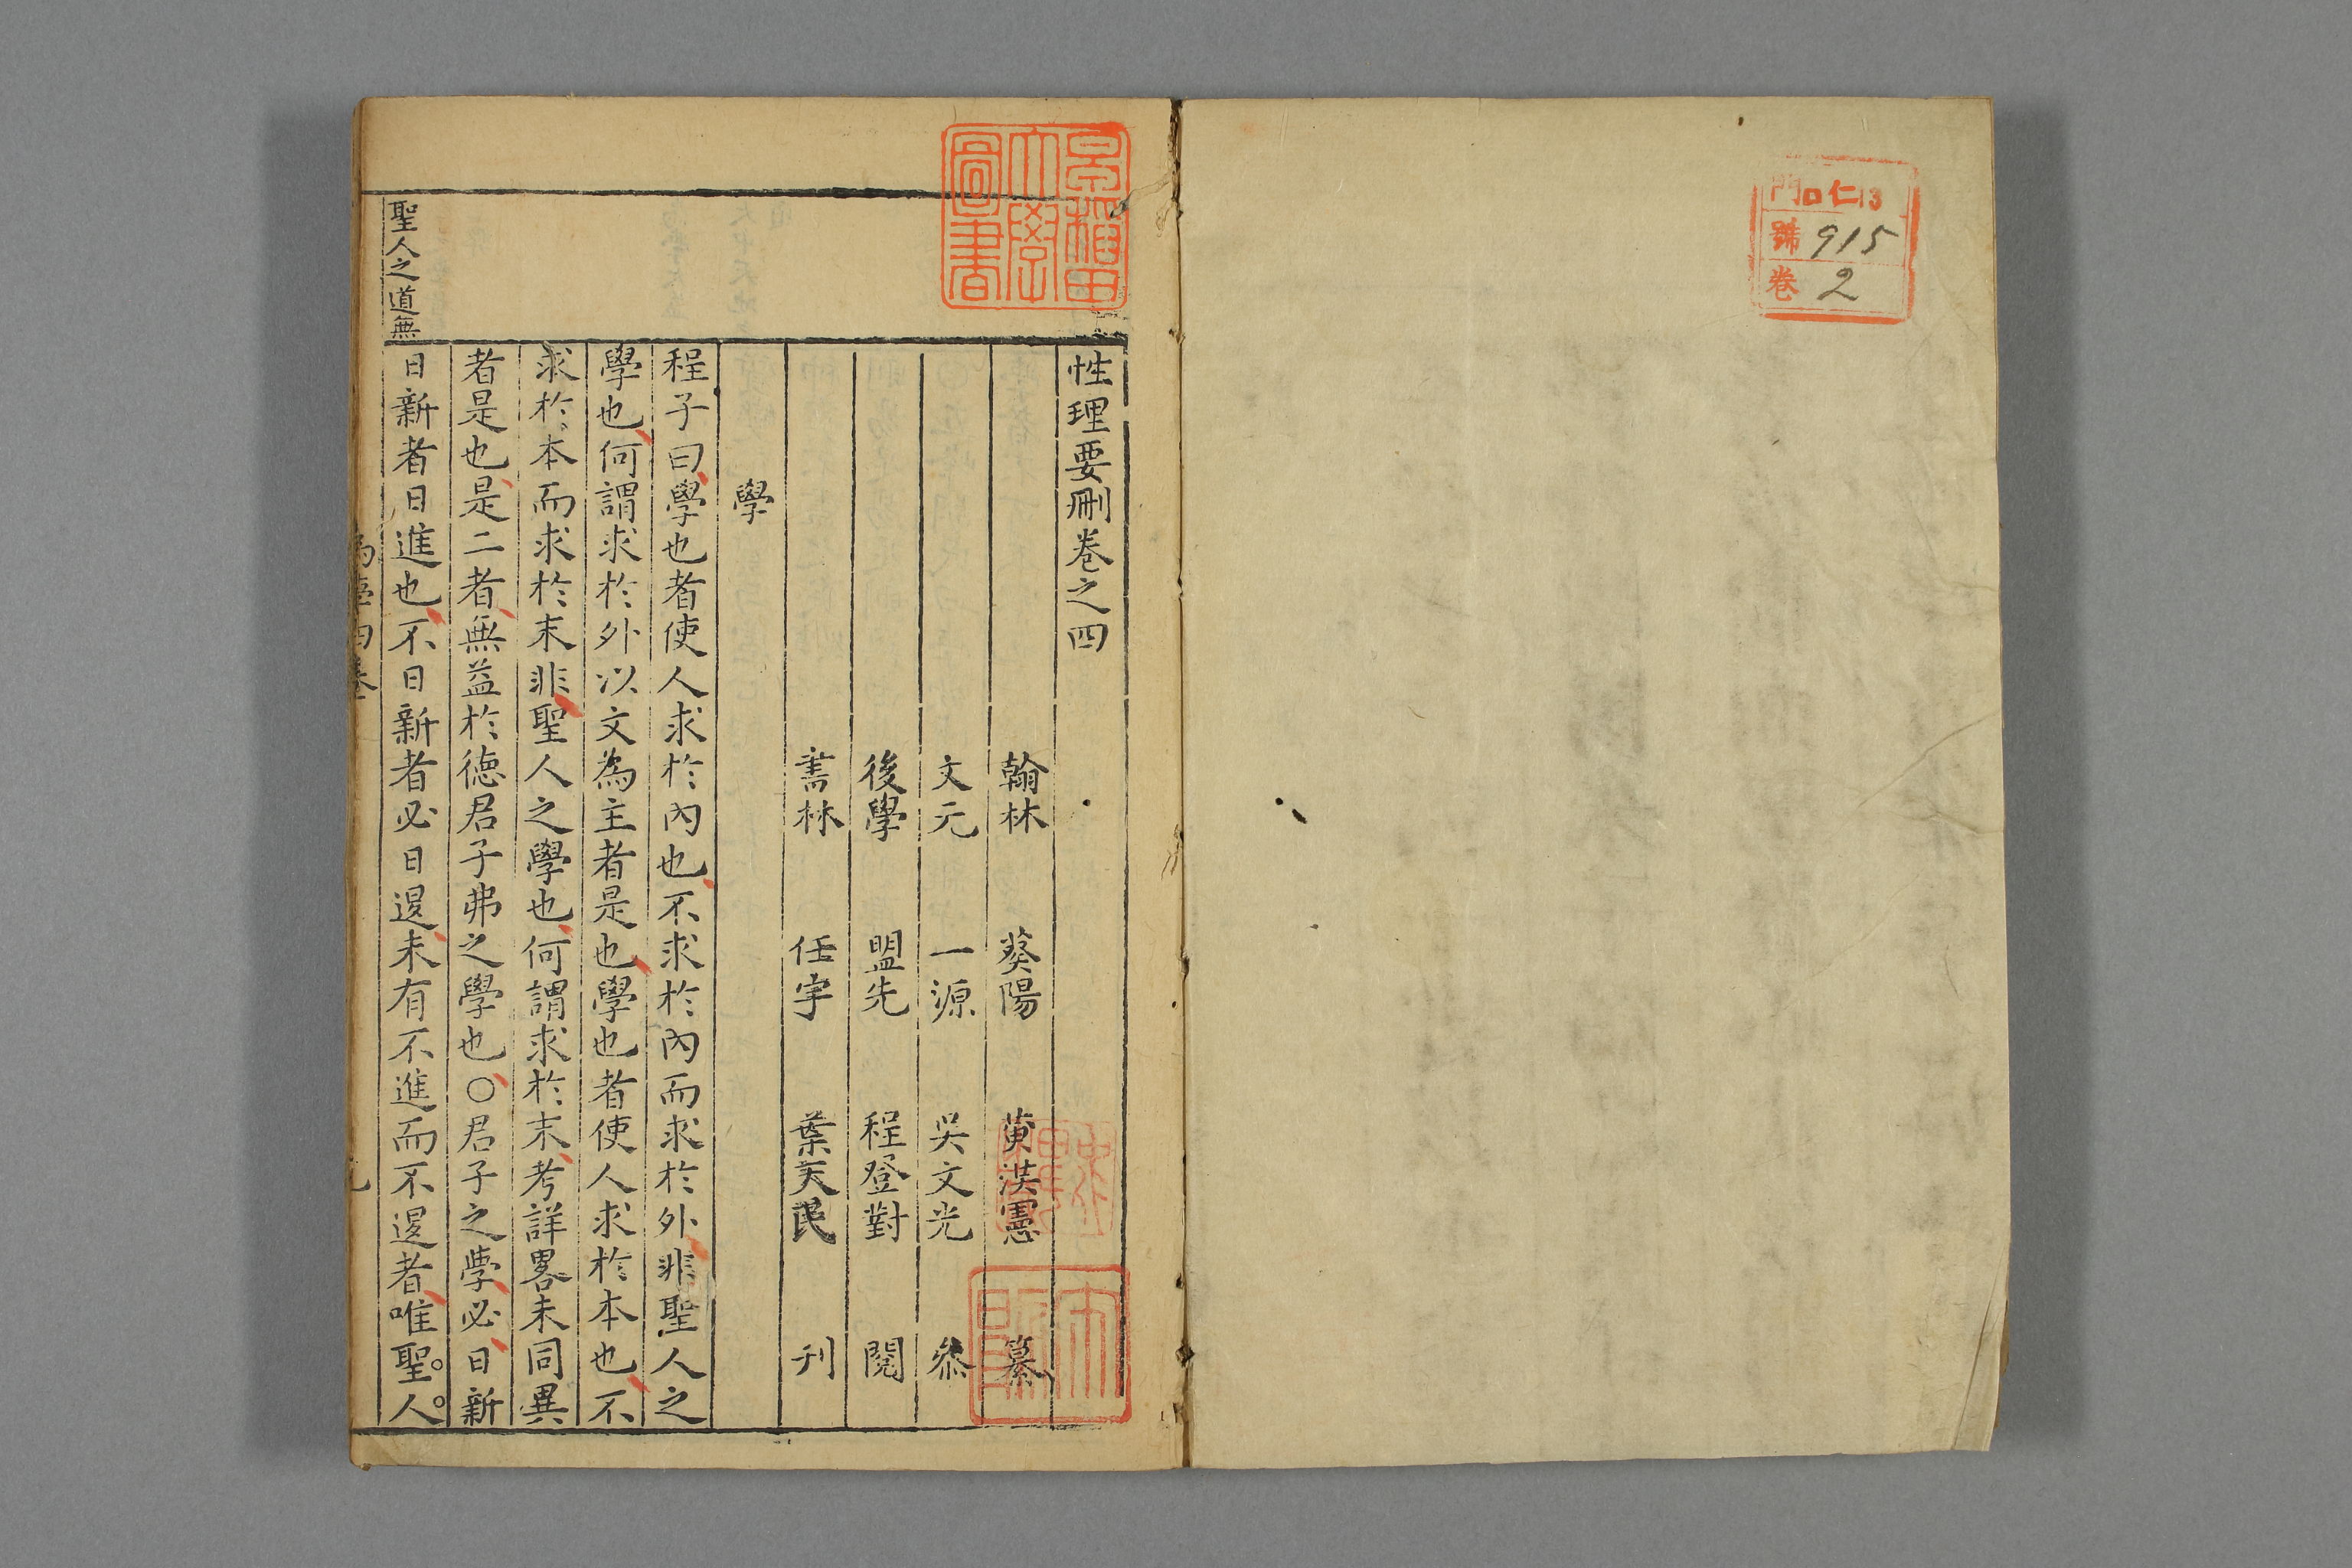 門 口仁13
號 915
卷 2
早稻田
大學
圖書
性理要刪卷之四
翰林 葵陽 黃洪憲 纂
文元 一源 吳文光 叅
後學 盟先 程登對 閱
書林 任宇 葉天民 刊
學
程子曰學也者使人求於內也不求於內而求於外非聖人之
學也何謂求於外以文為主者是也學也者使人求於本也不
求於本而求於末非聖人之學也何謂求於末考詳畧未同異
者是也是二者無益於德君子弗之學也○君子之學必日新
日新者日進也不日新者必日退未有不進而不退者唯聖人
聖人之道無